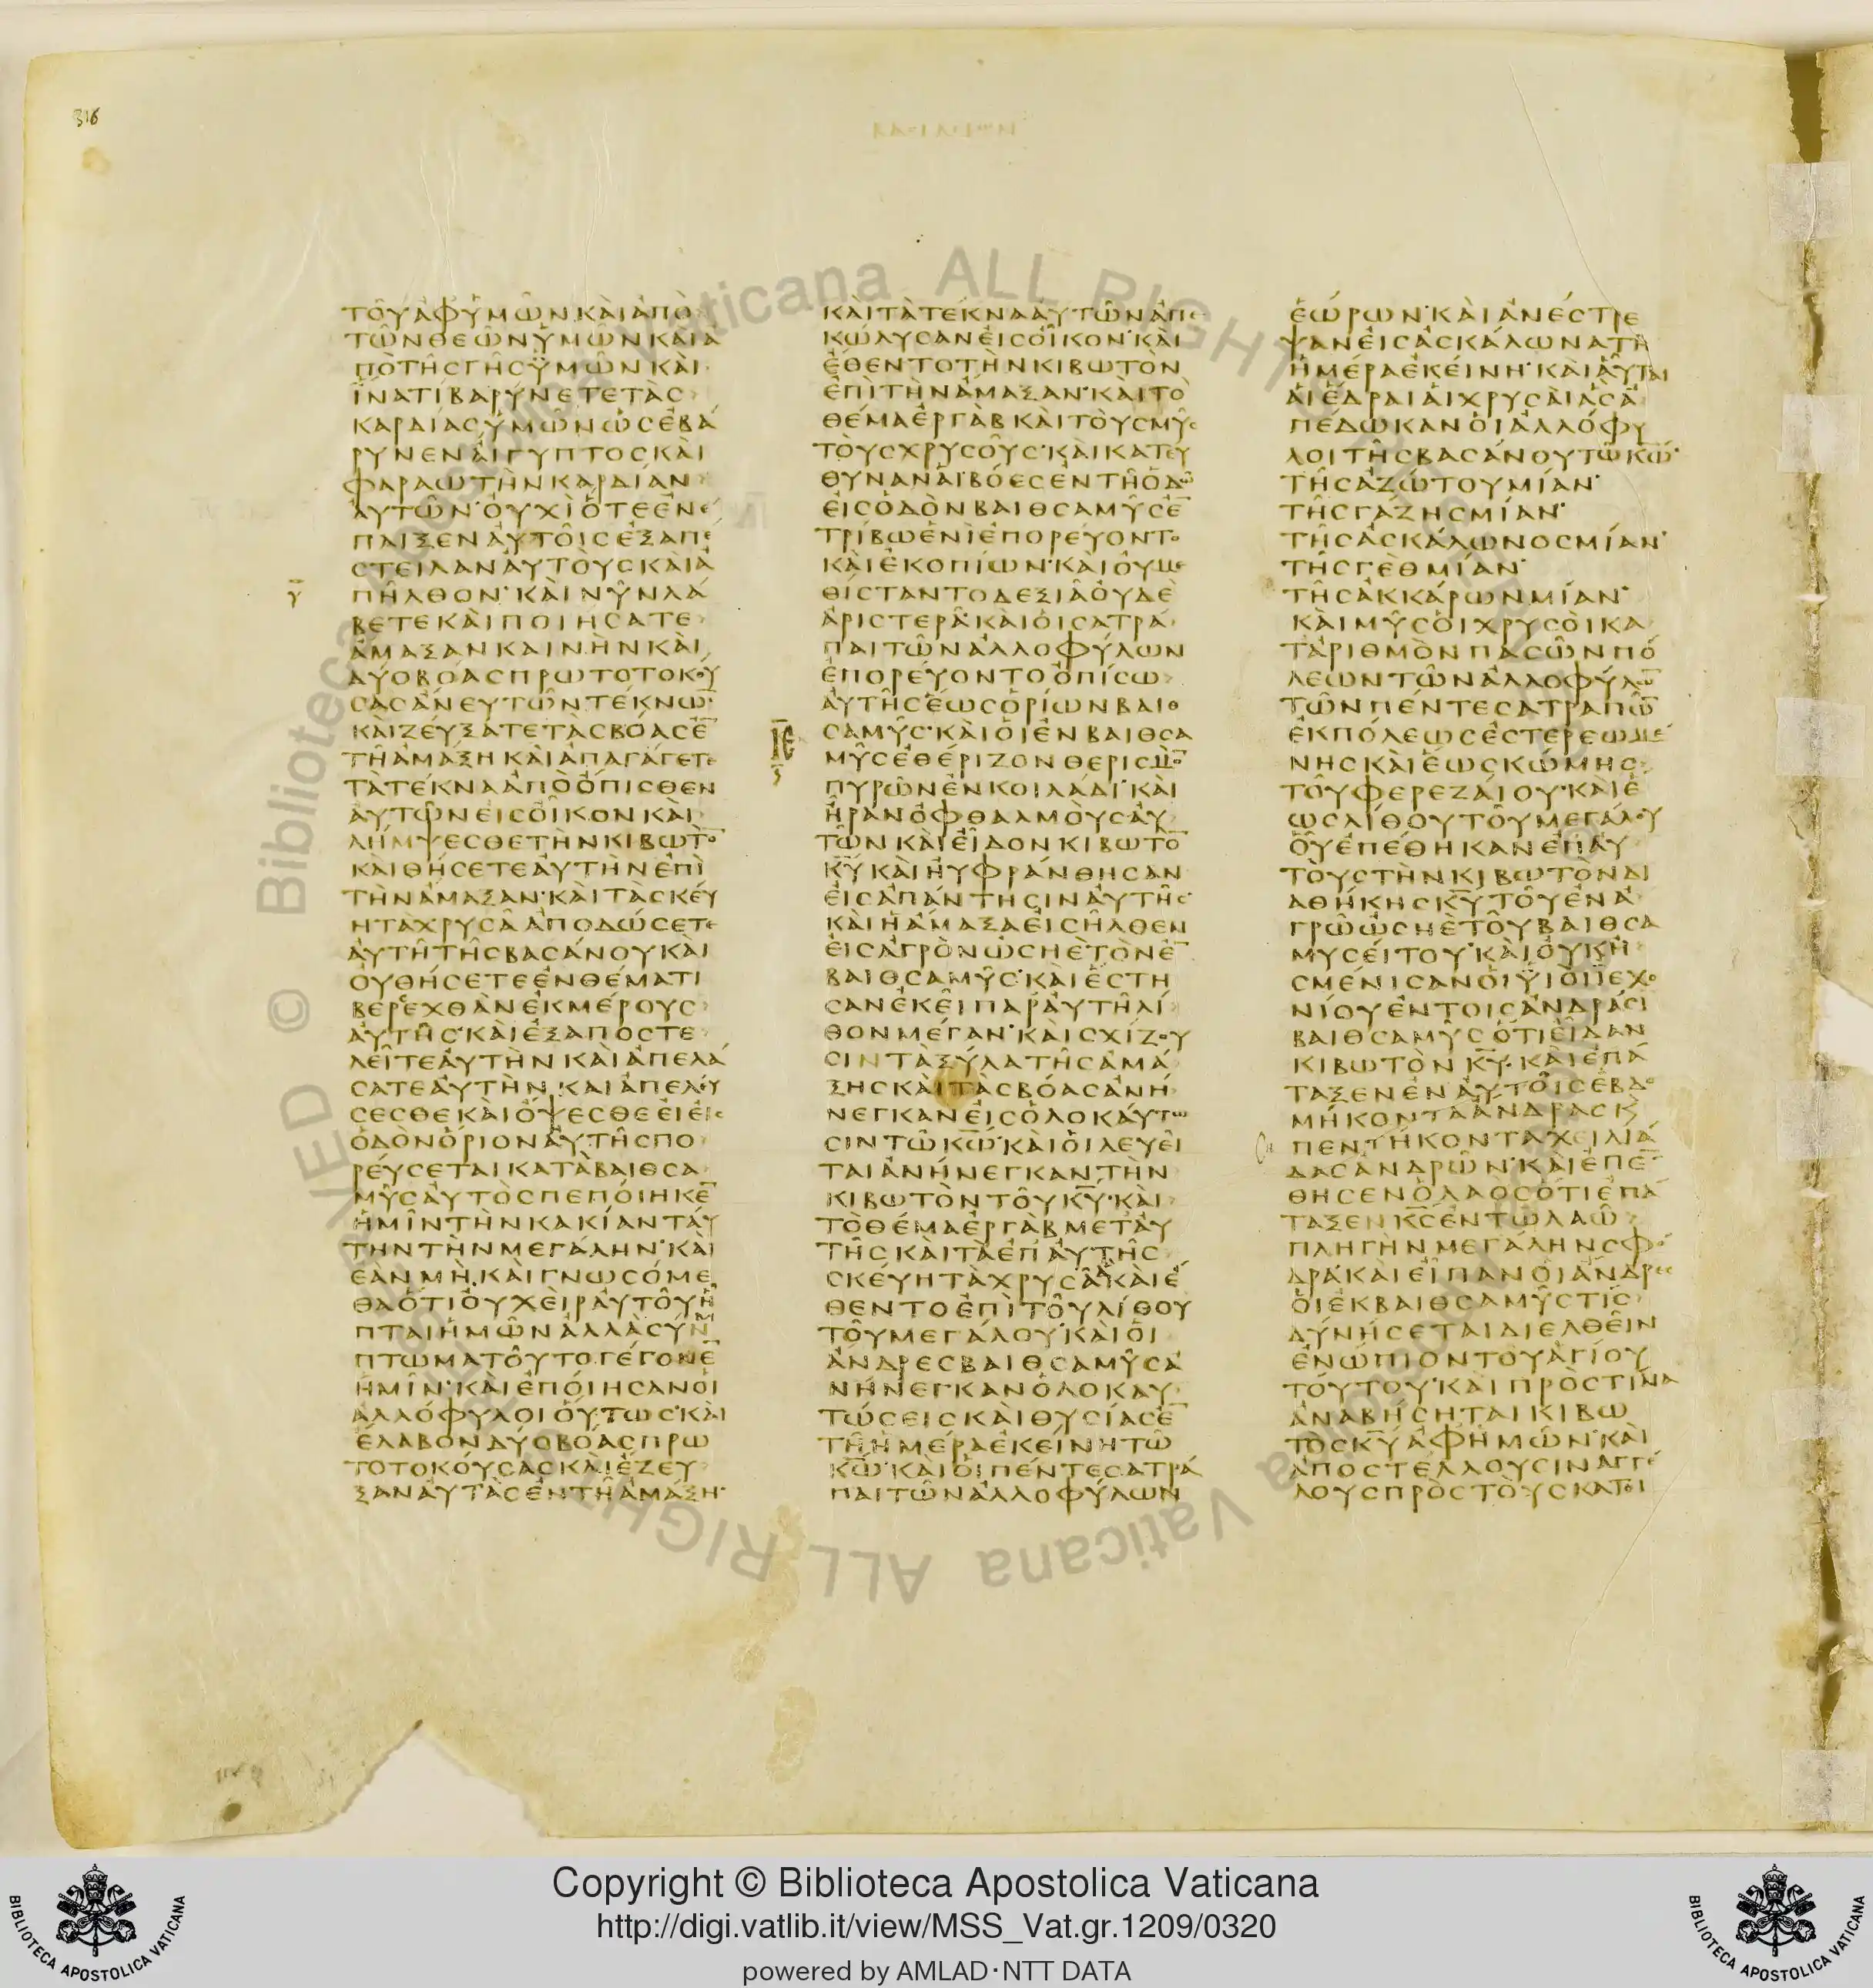 316
ΒΑϹΙΛΕΙΩΝ
ΤΟΥΑΦΥΜΩΝΚΑΙΑΠΟ
ΤΩΝΘΕΩΝΥΜΩΝΚΑΙΑ
ΠΟΤΗϹΓΗϹΥΜΩΝΚΑΙ
ΪΝΑΤΙΒΑΡΥΝΕΤΕΤΑϹ
ΚΑΡΔΙΑϹΥΜΩΝΩϹΕΒΑ
ΡΥΝΕΝΑΙΓΥΠΤΟϹΚΑΙ
ΦΑΡΑΩΤΗΝΚΑΡΔΙΑΝ
ΑΥΤΩΝ·ΟΥΧΙΟΤΕΕΝΕ
ΠΑΙΞΕΝΑΥΤΟΙϹΕΞΑΠΕ
ϹΤΕΙΛΑΝΑΥΤΟΥϹΚΑΙΑ
ΠΗΛΘΟΝ·ΚΑΙΝΥΝΛΑ
ΒΕΤΕΚΑΙΠΟΙΗϹΑΤΕ
ΑΜΑΞΑΝΚΑΙΝΗΝΚΑΙ
ΔΥΟΒΟΑϹΠΡΩΤΟΤΟΚΟΥ
ϹΑϹΑΝΕΥΤΩΝΤΕΚΝΩ̅
ΚΑΙΖΕΥΞΑΤΕΤΑϹΒΟΑϹΕ̅
ΤΗΑΜΑΞΗΚΑΙΑΠΑΓΑΓΕΤΕ
ΤΑΤΕΚΝΑΑΠΟΟΠΙϹΘΕΝ
ΑΥΤΩΝΕΙϹΟΙΚΟΝΚΑΙ
ΛΗΜΨΕϹΘΕΤΗΝΚΙΒΩΤΟ̅
ΚΑΙΘΗϹΕΤΕΑΥΤΗΝΕΠΙ
ΤΗΝΑΜΑΞΑΝ·ΚΑΙΤΑϹΚΕΥ
ΗΤΑΧΡΥϹΑΑΠΟΔΩϹΕΤΕ
ΑΥΤΗΤΗϹΒΑϹΑΝΟΥΚΑΙ
ΟΥΘΗϹΕΤΕΕΝΘΕΜΑΤΙ
ΒΕΡΕΧΘΑΝΕΚΜΕΡΟΥϹ
ΑΥΤΗϹ·ΚΑΙΕΞΑΠΟϹΤΕ
ΛΕΙΤΕΑΥΤΗΝΚΑΙΑΠΕΛΑ
ϹΑΤΕΑΥΤΗΝΚΑΙΑΠΕΛΟΥ
ϹΕϹΘΕΚΑΙΟΨΕϹΘΕΕΙΕΙϹ
ΟΔΟΝΟΡΙΟΝΑΥΤΗϹΠΟ
ΡΕΥϹΕΤΑΙΚΑΤΑΒΑΙΘϹΑ
ΜΥϹΑΥΤΟϹΠΕΠΟΙΗΚΕ̅
ΗΜΙΝΤΗΝΚΑΚΙΑΝΤΑΥ
ΤΗΝΤΗΝΜΕΓΑΛΗΝ·ΚΑΙ
ΕΑΝΜΗΚΑΙΓΝΩϹΟΜΕ
ΘΑΟΤΙΟΥΧΕΙΡΑΥΤΟΥΗ
ΠΤΑΙΗΜΩΝΑΛΛΑϹΥΝ
ΠΤΩΜΑΤΟΥΤΟΓΕΓΟΝΕ̅
ΗΜΙΝ·ΚΑΙΕΠΟΙΗϹΑΝΟΙ
ΑΛΛΟΦΥΛΟΙΟΥΤΩϹ·ΚΑΙ
ΕΛΑΒΟΝΔΥΟΒΟΑϹΠΡΩ
ΤΟΤΟΚΟΥϹΑϹΚΑΙΕΖΕΥ
ΞΑΝΑΥΤΑϹΕΝΤΗΑΜΑΞΗ·
ΚΑΙΤΑΤΕΚΝΑΑΥΤΩΝΑΠΕ
ΚΩΛΥϹΑΝΕΙϹΟΙΚΟΝ·ΚΑΙ
ΕΘΕΝΤΟΤΗΝΚΙΒΩΤΟΝ
ΕΠΙΤΗΝΑΜΑΞΑΝ·ΚΑΙΤΟ
ΘΕΜΑΕΡΓΑΒΚΑΙΤΟΥϹΜΥϹ
ΤΟΥϹΧΡΥϹΟΥϹ·ΚΑΙΚΑΤΕΥ
ΘΥΝΑΝΑΙΒΟΕϹΕΝΤΗΟΔΩ
ΕΙϹΟΔΟΝΒΑΙΘϹΑΜΥϹΕ̅
ΤΡΙΒΩΕΝΙΕΠΟΡΕΥΟΝΤΟ
ΚΑΙΕΚΟΠΙΩΝ·ΚΑΙΟΥΜΕ
ΘΙϹΤΑΝΤΟΔΕΞΙΑΟΥΔΕ
ΑΡΙϹΤΕΡΑ·ΚΑΙΟΙϹΑΤΡΑ
ΠΑΙΤΩΝΑΛΛΟΦΥΛΩΝ
ΕΠΟΡΕΥΟΝΤΟΟΠΙϹΩ
ΑΥΤΗϹΕΩϹΟΡΙΩΝΒΑΙΘ
ϹΑΜΥϹ·ΚΑΙΟΙΕΝΒΑΙΘϹΑ
ΜΥϹΕΘΕΡΙΖΟΝΘΕΡΙϹΜΟ̅
ΠΥΡΩΝΕΝΚΟΙΛΑΔΙ·ΚΑΙ
ΗΡΑΝΟΦΘΑΛΜΟΥϹΑΥ
ΤΩΝΚΑΙΕΙΔΟΝΚΙΒΩΤΟ̅
Κ̅Υ̅ΚΑΙΗΥΦΡΑΝΘΗϹΑΝ
ΕΙϹΑΠΑΝΤΗϹΙΝΑΥΤΗϹ·
ΚΑΙΗΑΜΑΞΑΕΙϹΗΛΘΕΝ
ΕΙϹΑΓΡΟΝΩϹΗΕΤΟΝΕ̅
ΒΑΙΘϹΑΜΥϹ·ΚΑΙΕϹΤΗ
ϹΑΝΕΚΕΙΠΑΡΑΥΤΗΛΙ
ΘΟΝΜΕΓΑΝ·ΚΑΙϹΧΙΖΟΥ
ϹΙΝΤΑΞΥΛΑΤΗϹΑΜΑ
ΞΗϹΚΑΙΤΑϹΒΟΑϹΑΝΗ
ΝΕΓΚΑΝΕΙϹΟΛΟΚΑΥΤΩ
ϹΙΝΤΩΚ̅Ω̅·ΚΑΙΟΙΛΕΥΕΙ
ΤΑΙΑΝΗΝΕΓΚΑΝΤΗΝ
ΚΙΒΩΤΟΝΤΟΥΚ̅Υ̅·ΚΑΙ
ΤΟΘΕΜΑΕΡΓΑΒΜΕΤΑΥ
ΤΗϹΚΑΙΤΑΕΠΑΥΤΗϹ
ϹΚΕΥΗΤΑΧΡΥϹΑΚΑΙΕ
ΘΕΝΤΟΕΠΙΤΟΥΛΙΘΟΥ
ΤΟΥΜΕΓΑΛΟΥ·ΚΑΙΟΙ
ΑΝΔΡΕϹΒΑΙΘϹΑΜΥϹΑ
ΝΗΝΕΓΚΑΝΟΛΟΚΑΥ
ΤΩϹΕΙϹΚΑΙΘΥϹΙΑϹΕ̅
ΤΗΗΜΕΡΑΕΚΕΙΝΗΤΩ
Κ̅Ω̅·ΚΑΙΟΙΠΕΝΤΕϹΑΤΡΑ
ΠΑΙΤΩΝΑΛΛΟΦΥΛΩΝ
ΕΩΡΩΝ·ΚΑΙΑΝΕϹΤΡΕ
ΨΑΝΕΙϹΑϹΚΑΛΩΝΑΤΗ
ΗΜΕΡΑΕΚΕΙΝΗ·ΚΑΙΑΥΤΑΙ
ΑΙΕΔΡΑΙΑΙΧΡΥϹΑΙΑϹΑ
ΠΕΔΩΚΑΝΟΙΑΛΛΟΦΥ
ΛΟΙΤΗϹΒΑϹΑΝΟΥΤΩΚ̅Ω̅·
ΤΗϹΑΖΩΤΟΥΜΙΑΝ·
ΤΗϹΓΑΖΗϹΜΙΑΝ·
ΤΗϹΑϹΚΑΛΩΝΟϹΜΙΑΝ·
ΤΗϹΓΕΘΜΙΑΝ·
ΤΗϹΑΚΚΑΡΩΝΜΙΑΝ·
ΚΑΙΜΥϹΟΙΧΡΥϹΟΙΚΑ
ΤΑΡΙΘΜΟΝΠΑϹΩΝΠΟ
ΛΕΩΝΤΩΝΑΛΛΟΦΥΛΩ̅
ΤΩΝΠΕΝΤΕϹΑΤΡΑΠΩ̅
ΕΚΠΟΛΕΩϹΕϹΤΕΡΕΩΜΕ
ΝΗϹΚΑΙΕΩϹΚΩΜΗϹ
ΤΟΥΦΕΡΕΖΑΙΟΥ·ΚΑΙΕ
ΩϹΛΙΘΟΥΤΟΥΜΕΓΑΛΟΥ
ΟΥΕΠΕΘΗΚΑΝΕΠΑΥ
ΤΟΥϹΤΗΝΚΙΒΩΤΟΝΔΙ
ΑΘΗΚΗϹΚ̅Υ̅ΤΟΥΕΝΑ
ΓΡΩΩϹΗΕΤΟΥΒΑΙΘϹΑ
ΜΥϹΕΙΤΟΥ·ΚΑΙΟΥΚΗ
ϹΜΕΝΙϹΑΝΟΙΥΙΟΙΪΕΧΟ
ΝΙΟΥΕΝΤΟΙϹΑΝΔΡΑϹΙ
ΒΑΙΘϹΑΜΥϹΟΤΙΕΙΔΑΝ
ΚΙΒΩΤΟΝΚ̅Υ̅·ΚΑΙΕΠΑ
ΤΑΞΕΝΕΝΑΥΤΟΙϹΕΒΔΟ
ΜΗΚΟΝΤΑΑΝΔΡΑϹΚ
ΠΕΝΤΗΚΟΝΤΑΧΕΙΛΙΑ
ΔΑϹΑΝΔΡΩΝ·ΚΑΙΕΠΕ̅
ΘΗϹΕΝΟΛΑΟϹΟΤΙΕΠΑ
ΤΑΞΕΝΚ̅Ϲ̅ΕΝΤΩΛΑΩ
ΠΛΗΓΗΝΜΕΓΑΛΗΝϹΦΟ
ΔΡΑ·ΚΑΙΕΙΠΑΝΟΙΑΝΔΡΕϹ
ΟΙΕΚΒΑΙΘϹΑΜΥϹΤΙϹ
ΔΥΝΗϹΕΤΑΙΔΙΕΛΘΕΙΝ
ΕΝΩΠΙΟΝΤΟΥΑΓΙΟΥ
ΤΟΥΤΟΥ·ΚΑΙΠΡΟϹΤΙΝΑ
ΑΝΑΒΗϹΗΤΑΙΚΙΒΩ
ΤΟϹΚ̅Υ̅ΑΦΗΜΩΝ·ΚΑΙ
ΑΠΟϹΤΕΛΛΟΥϹΙΝΑΓΓΕ
ΛΟΥϹΠΡΟϹΤΟΥϹΚΑΤΟΙ
Γ̅
Ι̅Ε̅
Copyright © Biblioteca Apostolica Vaticana
http://digi.vatlib.it/view/MSS_Vat.gr.1209/0320
powered by AMLAD·NTT DATA
BIBLIOTECA APOSTOLICA VATICANA
BIBLIOTECA APOSTOLICA VATICANA